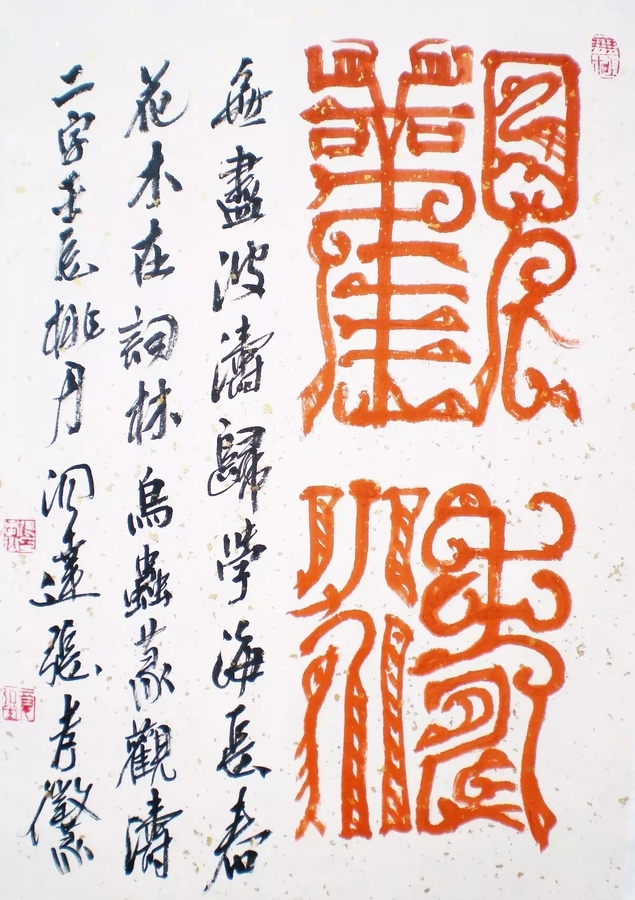 觀濤
無盡波濤歸學海長春
花木在詞林鳥蟲篆觀濤
二字壬辰桃月洞達張孝徽篆